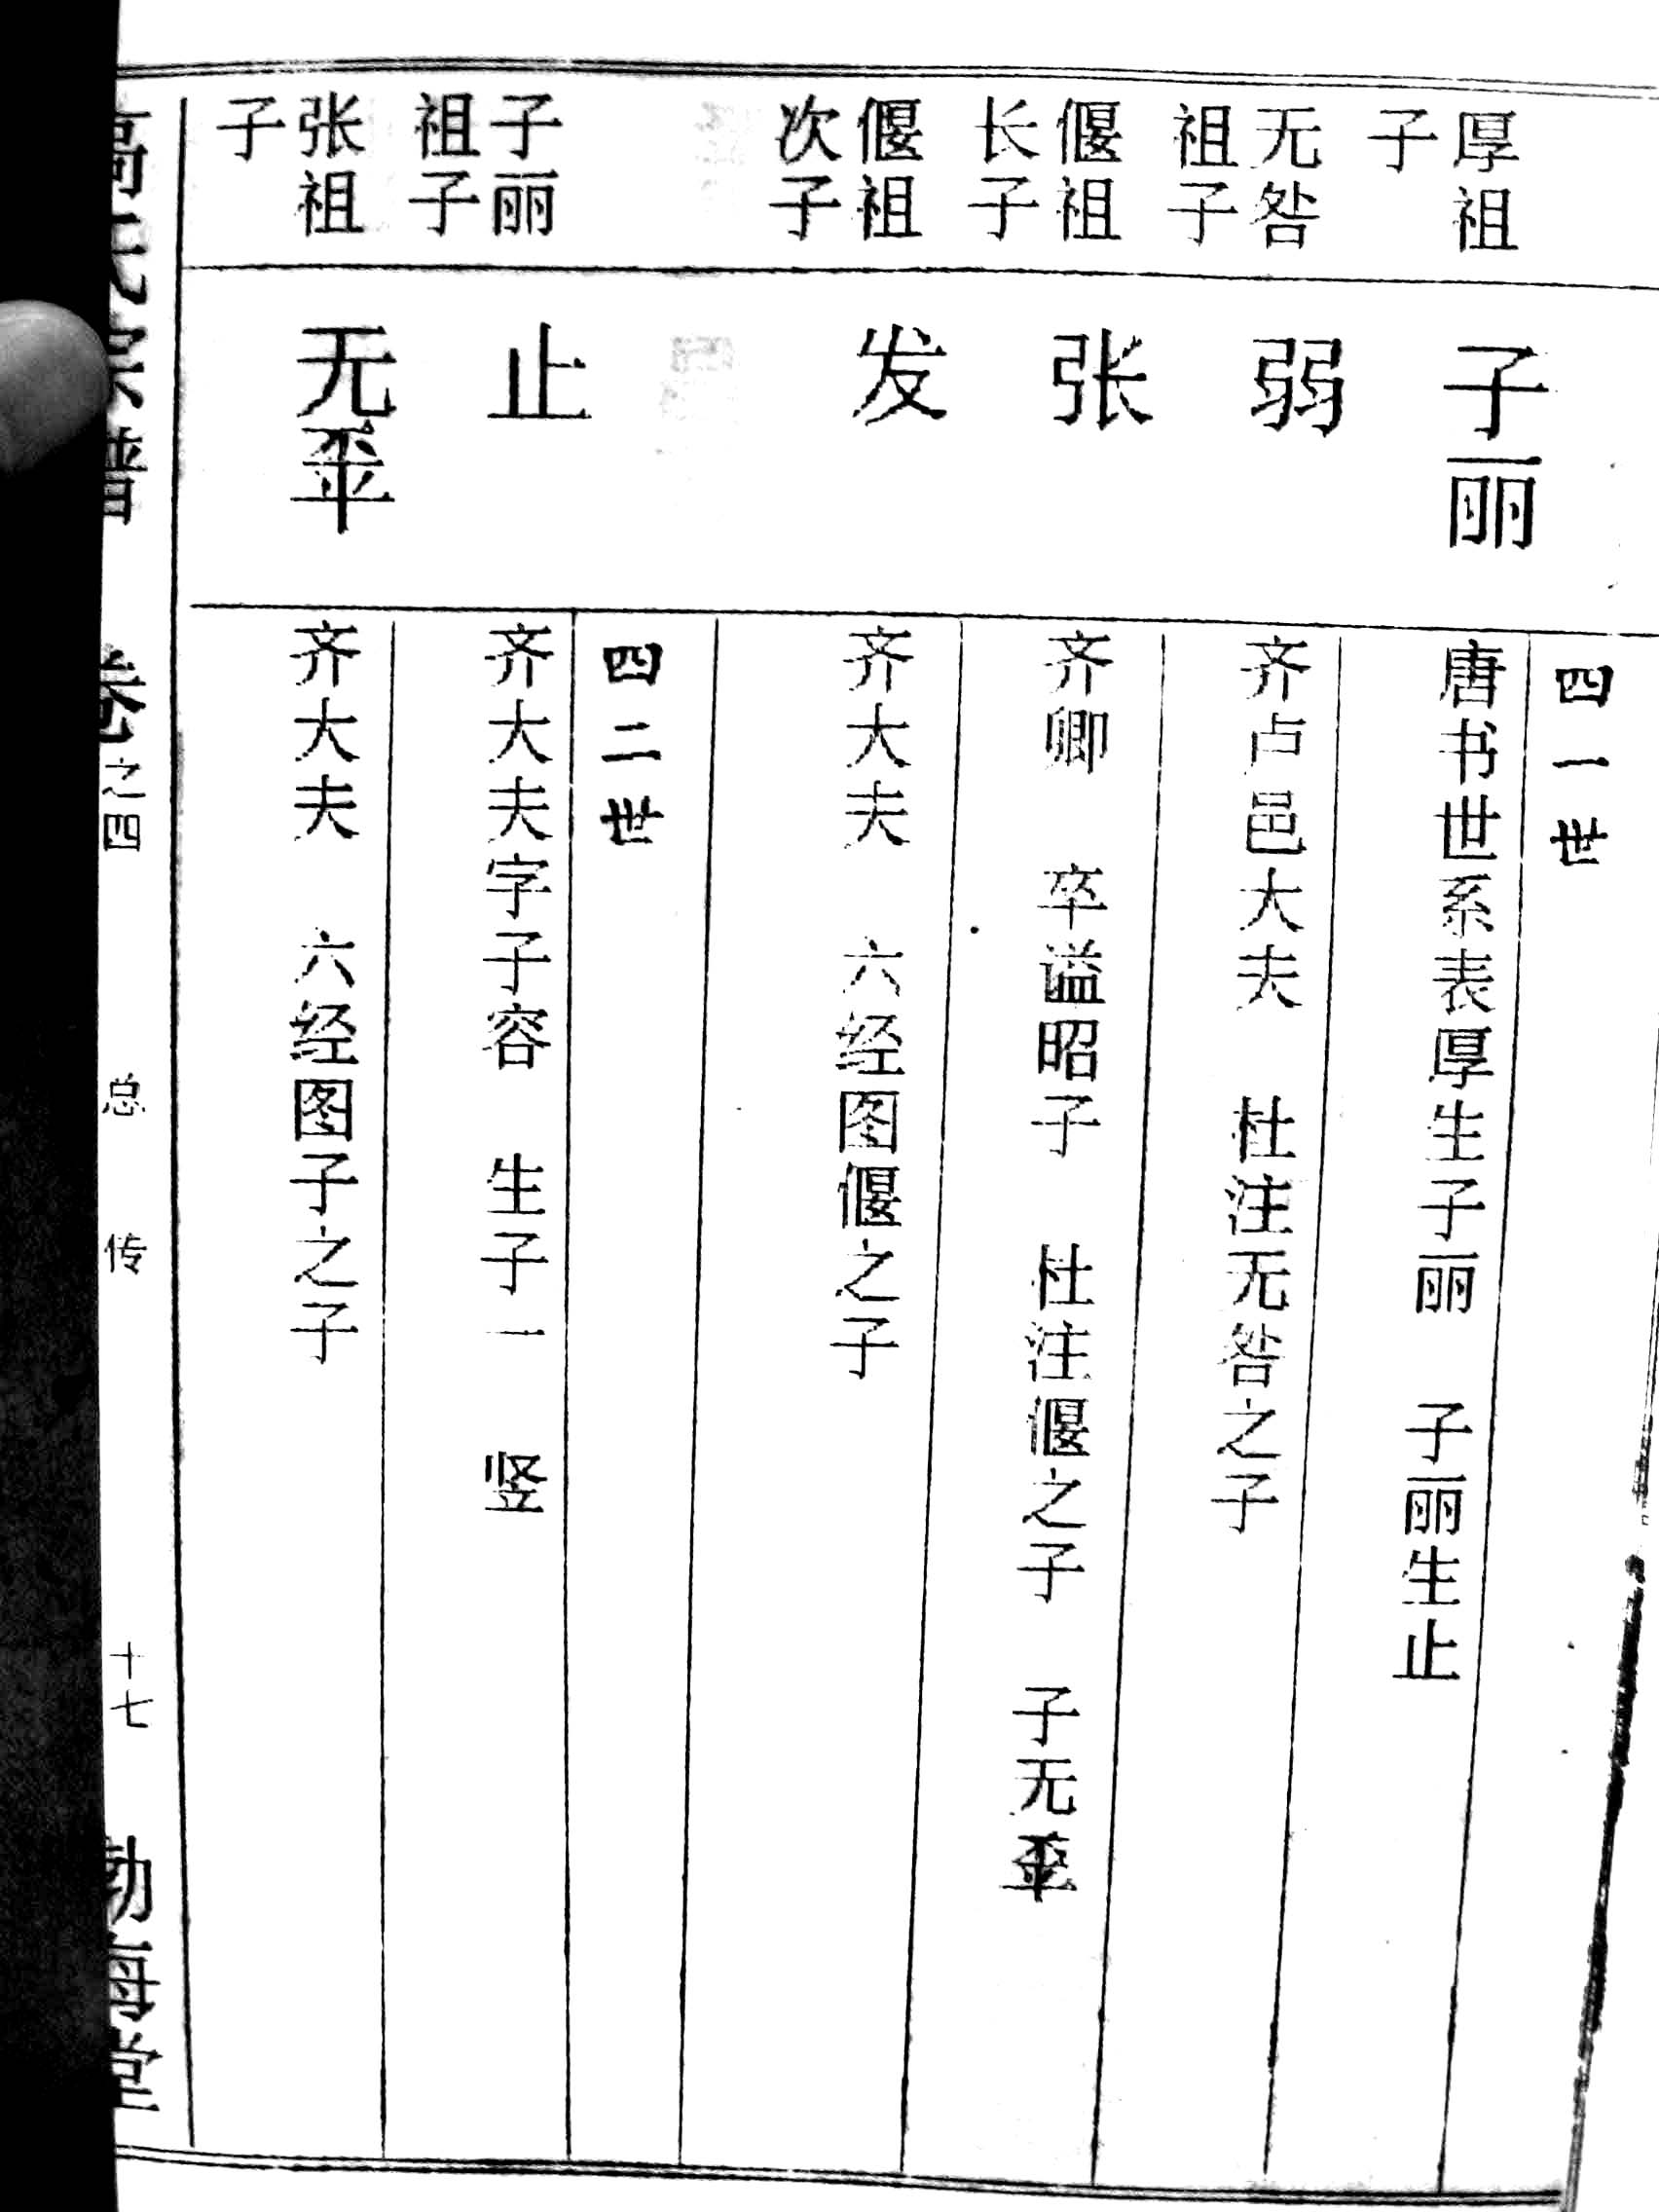 四一世
厚祖
子
子丽
唐书世系表厚生子丽 子丽生止
无咎
祖子
弱
齐卢邑大夫 杜注无咎之子
偃祖
长子
张
齐卿 卒谥昭子 杜注偃之子 子无㔻
偃祖
次子
发
齐大夫 六经图偃之子
四二世
子丽
祖子
止
齐大夫字子容 生子一 竖
张祖
子
无㔻
齐大夫 六经图子之子
高氏宗谱 卷之四 总传 十七 渤海堂